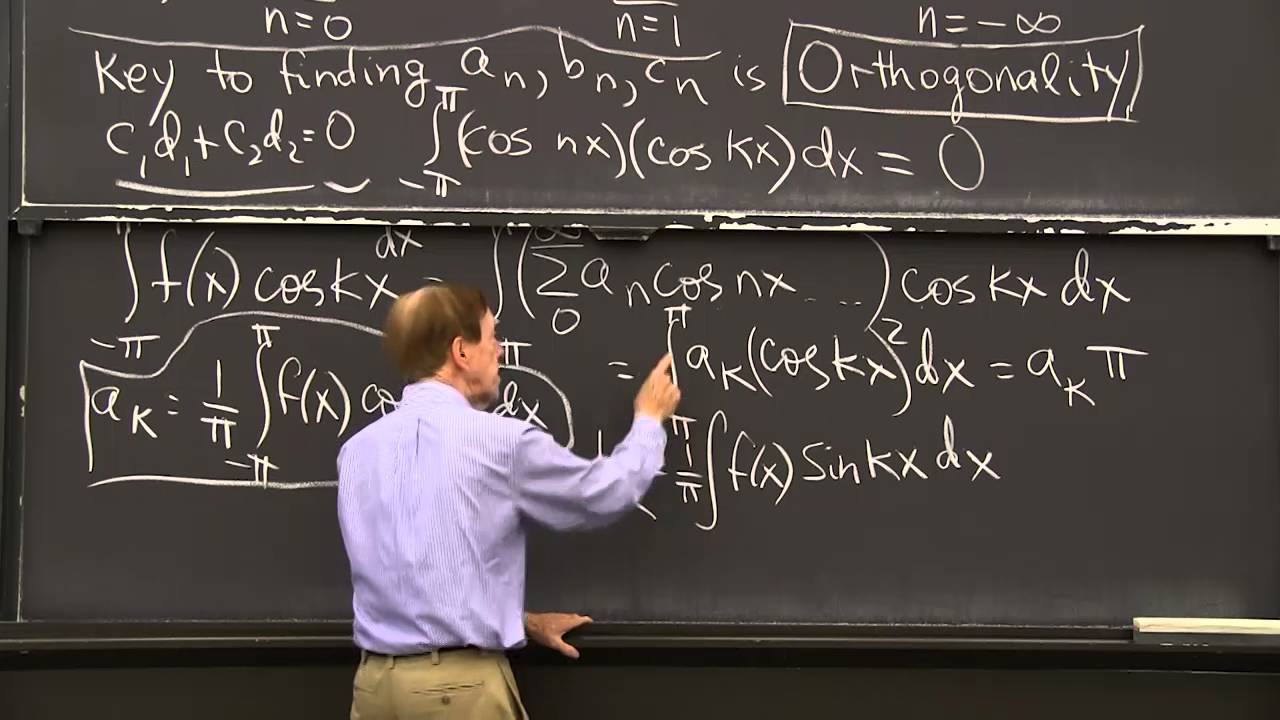 n=0 n=1 n=-∞
Key to finding aₙ, bₙ, cₙ is Orthogonality
c₁d₁+c₂d₂=0 ∫_{-π}^{π} (cos nx)(cos kx) dx = 0
∫_{-π} f(x) cos kx dx = ∫ (∑_{0}^{∞} aₙ cos nx ... ) cos kx dx
= ∫_{-π}^{π} a_k (cos kx)² dx = a_k π
a_k = 1/π ∫_{-π}^{π} f(x) dx
1/π ∫ f(x) sin kx dx